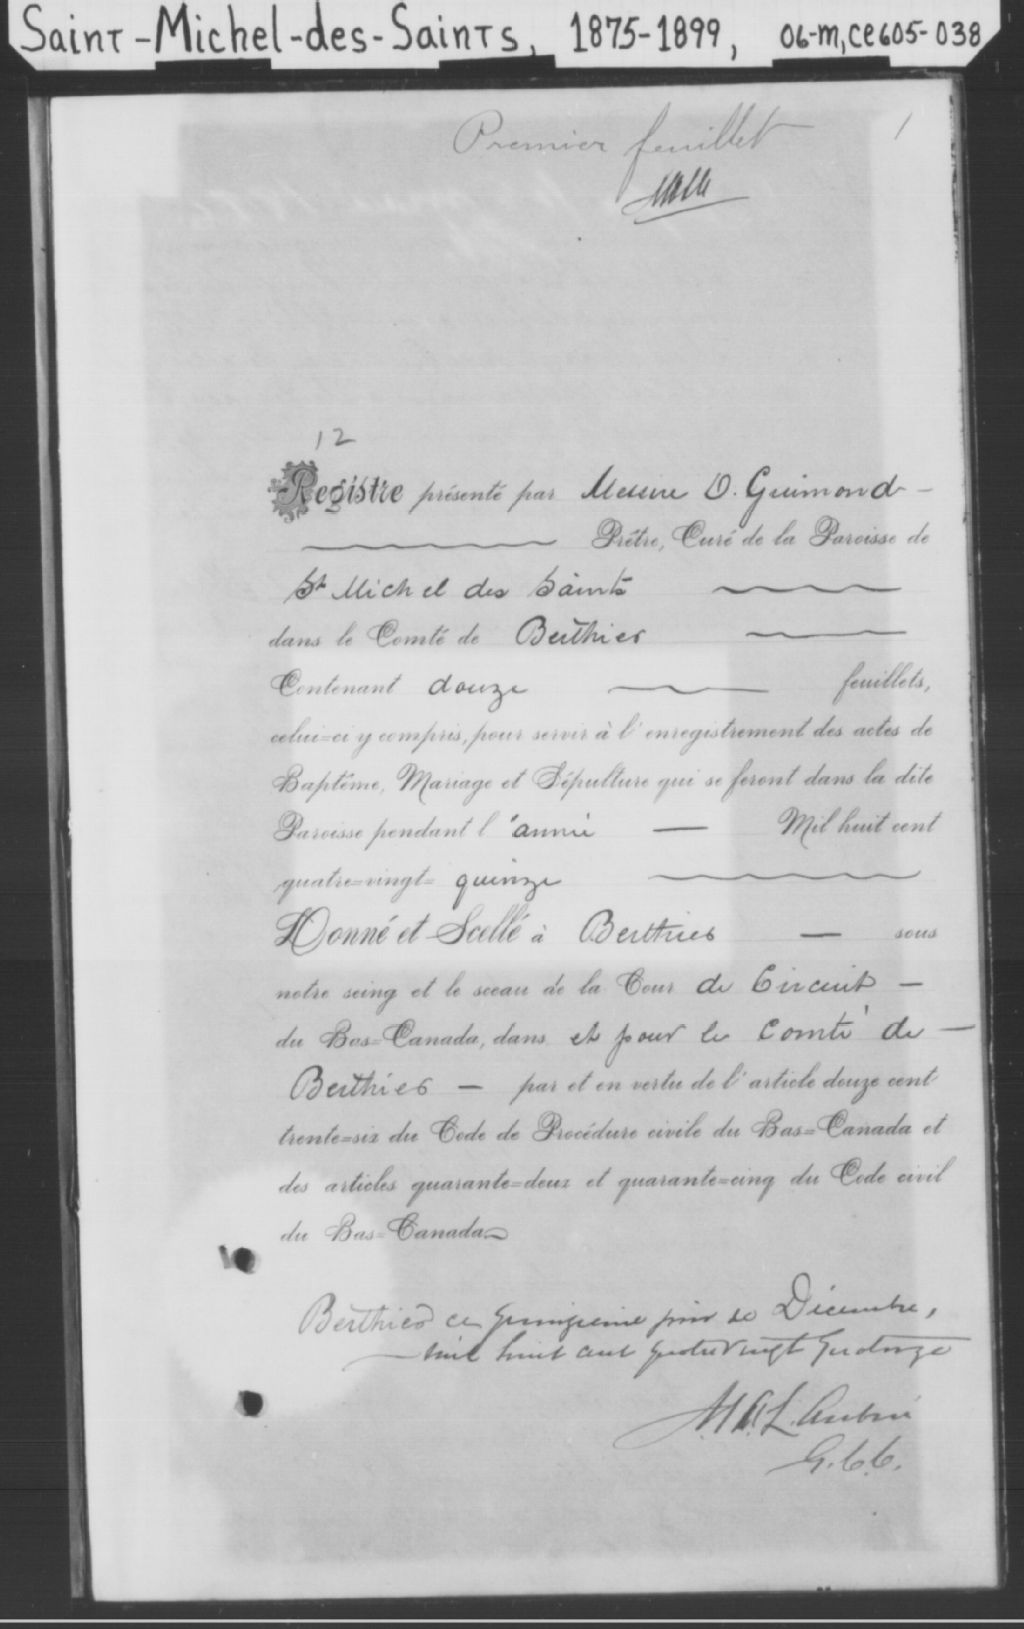 Saint-Michel-des-Saints, 1875-1899, 06-M,CE605-038
Premier feuillet
1
12
Registre présenté par Messire O. Guimond
Prêtre, Curé de la Paroisse de
St Michel des Saints
dans le Comté de Berthier
Contenant douze feuillets,
celui=ci y compris, pour servir à l'enregistrement des actes de
Baptême, Mariage et Sépulture qui se feront dans la dite
Paroisse pendant l'année — Mil huit cent
quatre=vingt= quinze
Donné et Scellé à Berthier — sous
notre seing et le sceau de la Cour de Circuit —
du Bas=Canada, dans et pour le Comté de —
Berthier — par et en vertu de l'article douze cent
trente=six du Code de Procédure civile du Bas=Canada et
des articles quarante=deux et quarante=cinq du Code civil
du Bas=Canada
Berthier ce quinzieme jour de Décembre,
mil huit cent quatre vingt quatorze
G.C.C.